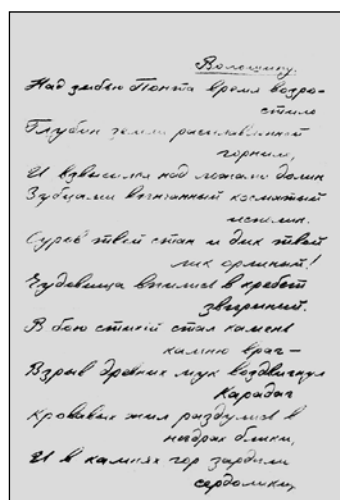 Волошину.
Над зыбью Понта время возро-
стило
Глубин земли расплавленной
горнило,
И взвысился над ложами долин
Зубцами венчанный косматый
исполин.
Суров твой стан и дик твой
лик орлиный!
Чудовища впились в хребет
звериный.
В бою стихий стал камень
камню враг —
Взрыв древних мук воздвигнул
Карадаг
Кровавых жил раздулись в
недрах блики,
И в камнях гор зардели
сердолики,